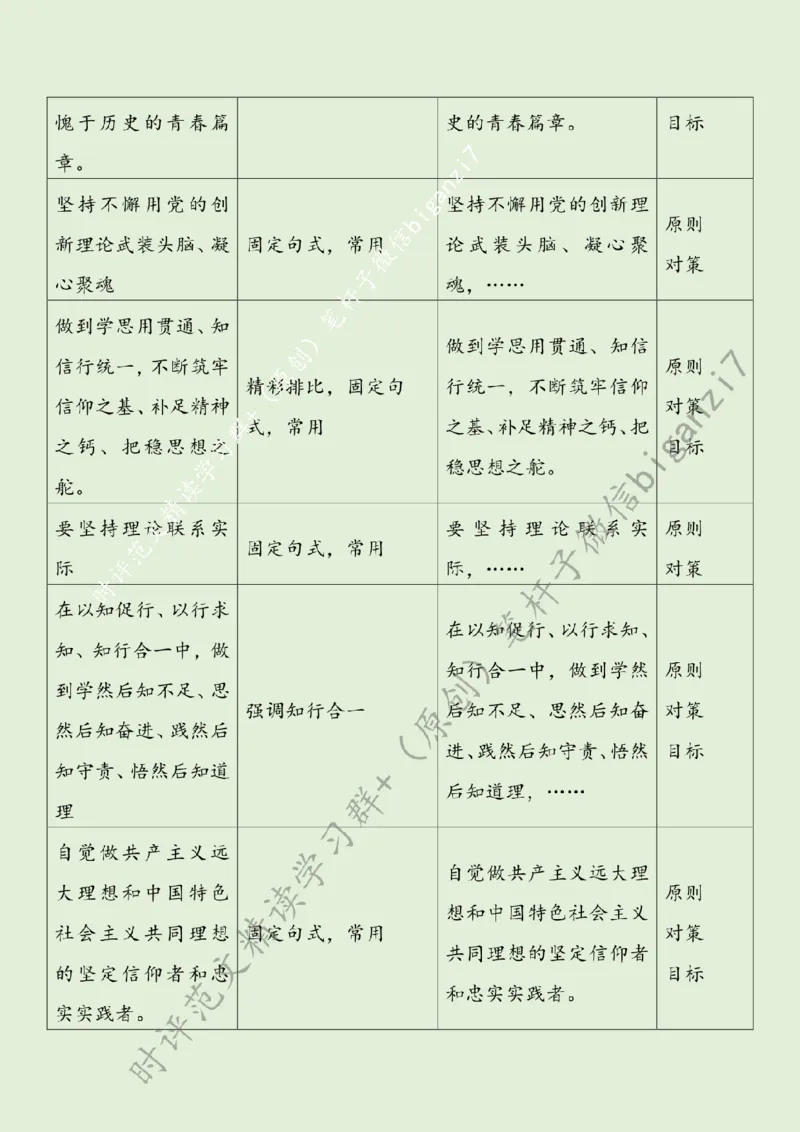 愧于历史的青春篇
章。
史的青春篇章。
目标
坚持不懈用党的创
新理论武装头脑、凝
心聚魂
固定句式，常用
坚持不懈用党的创新理
论武装头脑、凝心聚
魂，……
原则
对策
做到学思用贯通、知
信行统一，不断筑牢
信仰之基、补足精神
之钙、把稳思想之
舵。
精彩排比，固定句
式，常用
做到学思用贯通、知信
行统一，不断筑牢信仰
之基、补足精神之钙、把
稳思想之舵。
原则
对策
目标
要坚持理论联系实
际
固定句式，常用
要坚持理论联系实
际，……
原则
对策
在以知促行、以行求
知、知行合一中，做
到学然后知不足、思
然后知奋进、践然后
知守责、悟然后知道
理
强调知行合一
在以知促行、以行求知、
知行合一中，做到学然
后知不足、思然后知奋
进、践然后知守责、悟然
后知道理，……
原则
对策
目标
自觉做共产主义远
大理想和中国特色
社会主义共同理想
的坚定信仰者和忠
实实践者。
固定句式，常用
自觉做共产主义远大理
想和中国特色社会主义
共同理想的坚定信仰者
和忠实实践者。
原则
对策
目标
时评范文精读学习群+（原创）笔杆子微信biganzi7
时评范文精读学习群+（原创）笔杆子微信biganzi7